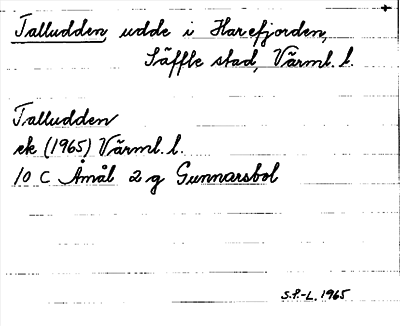 Talludden, udde i Harefjorden,
Säffle stad, Värml. l.
Talludden
ek (1965) Värml. l.
10 C Åmål 2 g Gunnarsbol
S.P.-L. 1965